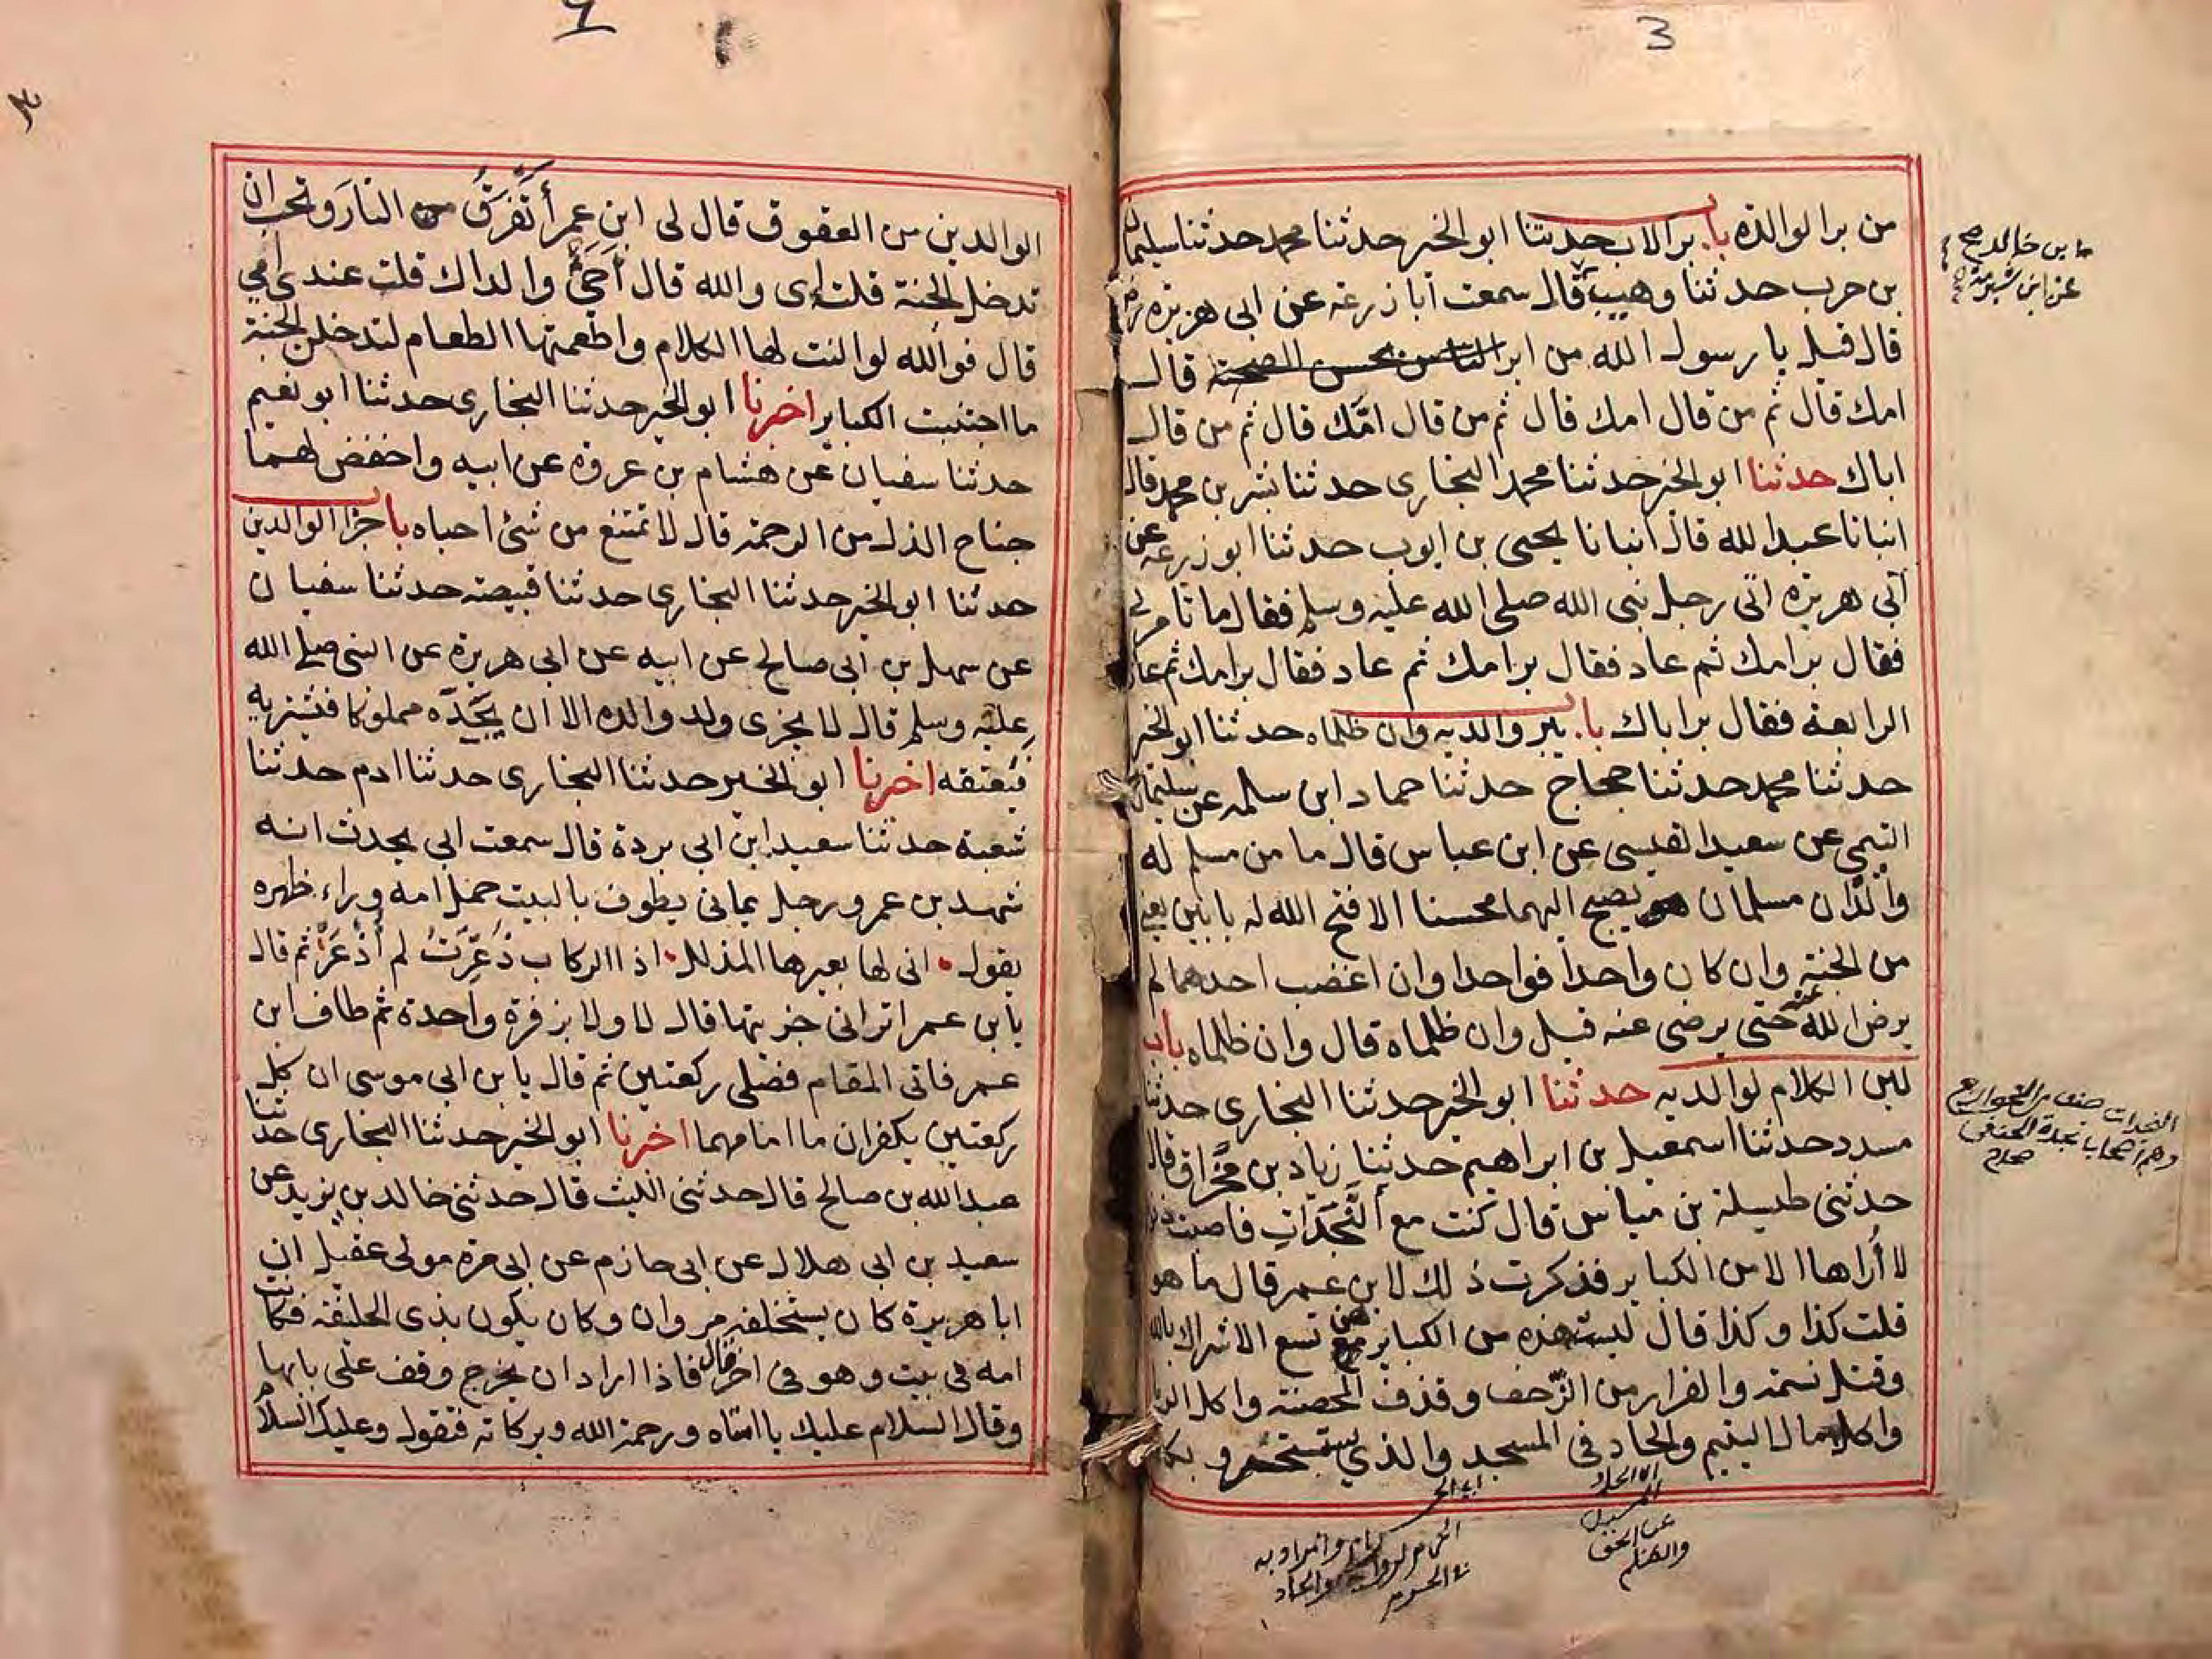 3
من بر الوالده باب بر الاب حدثنا ابو الخير حدثنا محمد حدثنا سليمان
بن حرب حدثنا وهيب قال سمعت ابا زرعة عن ابى هريرة
قال قيل يا رسول الله من ابر الناس بحسن الصحبة قال
امك قال ثم من قال امك قال ثم من قال امّك قال ثم من قال
اباك حدثنا ابو الخير حدثنا محمد البخارى حدثنا بشر بن محمد قال
انبانا عبد الله قال انبانا يحيى بن ايوب حدثنا ابو زرعة عن
ابي هريرة اتى رجل نبى الله صلى الله عليه وسلم فقال ما تامرني
فقال بر امك ثم عاد فقال بر امك ثم عاد فقال بر امك ثم عاد
الرابعة فقال بر اباك باب يبر والديه وان ظلماه حدثنا ابو الخير
حدثنا محمد حدثنا حجاج حدثنا حماد ابن سلمه عن سليمان
التيمي عن سعيد القيسى عن ابن عباس قال ما من مسلم له
والدان مسلمان يصبح اليهما محسنا الا فتح الله له بابين يعني
من الجنة وان كان واحدا فواحدا وان اغضب احدهما لم
يرض الله عنه حتى يرضى عنه قيل وان ظلماه قال وان ظلماه باب
لين الكلام لوالديه حدثنا ابو الخير حدثنا البخارى حدثنا
مسدد حدثنا اسمعيل بن ابراهيم حدثنا زياد بن مخراق قال
حدثنى طيسلة بن مياس قال كنت مع النَّجَدَات فاصبت ذنوبا
لا أراها الا من الكباير فذكرت ذلك لابن عمر قال ما هو
قلت كذا وكذا قال ليست هذه من الكباير هن تسع الاشراك بالله
وقتل نسمة والفرار من الزحف وقذف المحصنة واكل الربا
واكل مال اليتيم والحاد فى المسجد والذي يستسخر و بكا
ما بن خالد صح
عن ابن شبرمة
النجدات صنف من الخوارج
وهم اصحاب نجدة الحنفي
عن الحق
الوالدين من العقوق قال لى ابن عمر أَتَفْرَقُ من النار وتحب ان
تدخل الجنة قلت اى والله قال أَحَيٌّ والداك قلت عندى امي
قال فوالله لو النت لها الكلام واطعمتها الطعام لتدخلن الجنة
ما اجتنبت الكباير اخبرنا ابو الخير حدثنا البخارى حدثنا ابو نعيم
حدثنا سفيان عن هشام بن عروة عن ابيه واخفض لهما
جناح الذل من الرحمة قال لا تمتنع من شئ احباه باب جزا الوالدين
حدثنا ابو الخير حدثنا البخارى حدثنا قبيصة حدثنا سفيان
عن سهيل بن ابى صالح عن ابيه عن ابى هريرة عن النبى صلى الله
عليه وسلم قال لا يجزى ولد والده الا ان يجده مملوكا فيشتريه
فيعتقه اخبرنا ابو الخير حدثنا البخارى حدثنا ادم حدثنا
شعبة حدثنا سعيد ابن ابى بردة قال سمعت ابى يحدث انه
شهد بن عمر ورجل يمانى يطوف بالبيت حمل امه وراء ظهره
يقول • انى لها بعيرها المذلل • اذا الركاب ذُعِّرَتْ لم أُذْعَرْ ثم قال
يا بن عمر اترانى جزيتها قال لا ولا بزفرة واحدة ثم طاف ابن
عمر فاتى المقام فصلى ركعتين ثم قال يا بن ابى موسى ان كل
ركعتين يكفران ما امامهما اخبرنا ابو الخير حدثنا البخارى حدثنا
عبد الله بن صالح قال حدثنى الليث قال حدثنى خالد بن يزيد عن
سعيد بن ابى هلال عن ابى حازم عن ابى مرة مولى عقيل ان
ابا هريرة كان يستخلفه مروان وكان يكون بذى الحليفة فكانت
امه فى بيت وهو فى اخر قال فاذا اراد ان يخرج وقف على بابها
وقال السلام عليك يا امتاه ورحمة الله وبركاته فتقول وعليك السلام